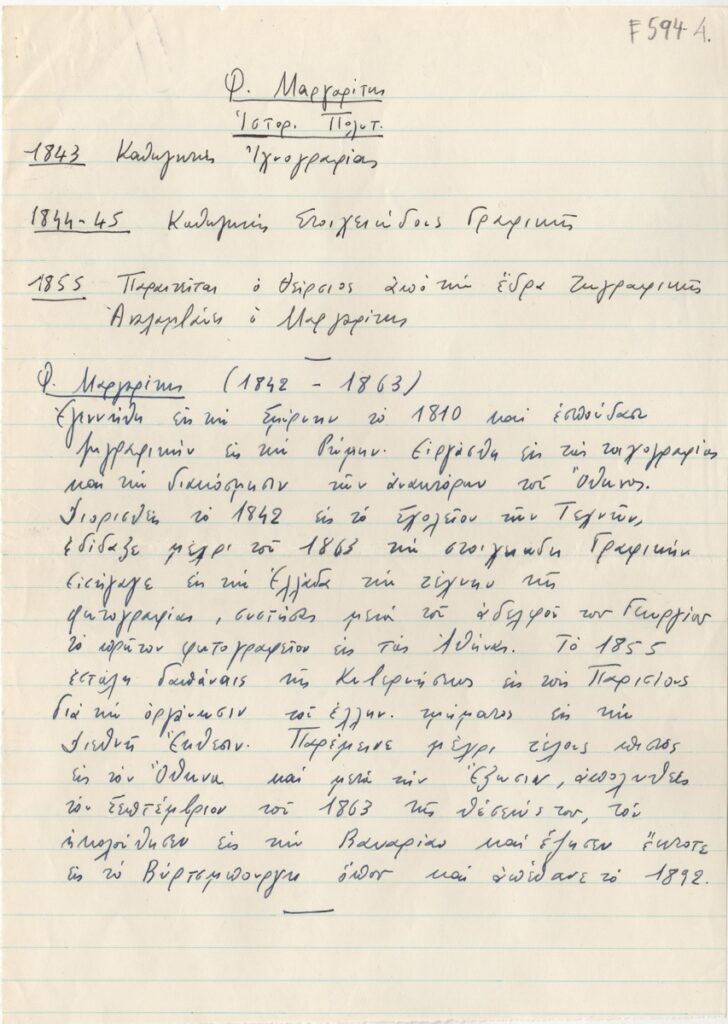 F 594-A.
Φ. Μαργαρίτης
Ἱστορ. Πολυτ.
1843 Καθηγητής Ἰχνογραφίας
1844-45 Καθηγητής Στοιχειώδους Γραφικῆς
1855 Παραιτεῖται ὁ Θείρσιος ἀπό τήν ἕδρα ζωγραφικῆς
Ἀναλαμβάνει ὁ Μαργαρίτης
Φ. Μαργαρίτης (1842 - 1863)
Ἐγεννήθη εἰς τήν Σμύρνην τό 1810 καί ἐσπούδασε
ζωγραφικήν εἰς τήν Ρώμην. Εἰργάσθη εἰς τάς τοιχογραφίας
καί τήν διακόσμησιν τῶν ἀνακτόρων τοῦ Ὄθωνος.
Διορισθείς τό 1842 εἰς τό Σχολεῖον τῶν Τεχνῶν,
ἐδίδαξε μέχρι τοῦ 1863 τήν στοιχειώδη Γραφικήν
Εἰσήγαγε εἰς τήν Ἑλλάδα τήν τέχνην τῆς
φωτογραφίας, συστήσας μετά τοῦ ἀδελφοῦ του Γεωργίου
τό πρῶτον φωτογραφεῖον εἰς τάς Ἀθήνας. Τό 1855
ἐστάλη δαπάναις τῆς Κυβερνήσεως εἰς τούς Παρισίους
διά τήν ὀργάνωσιν τοῦ ἑλλην. τμήματος εἰς τήν
Διεθνῆ Ἔκθεσιν. Παρέμεινε μέχρι τέλους πιστός
εἰς τόν Ὄθωνα καί μετά τήν Ἔξωσιν, ἀπολυθείς
τόν Σεπτέμβριον τοῦ 1863 τῆς θέσεώς του, τόν
ἠκολούθησεν εἰς τήν Βαυαρίαν καί ἔζησεν ἔκτοτε
εἰς τό Βύρτσμπουργκ ὅπου καί ἀπέθανε τό 1892.